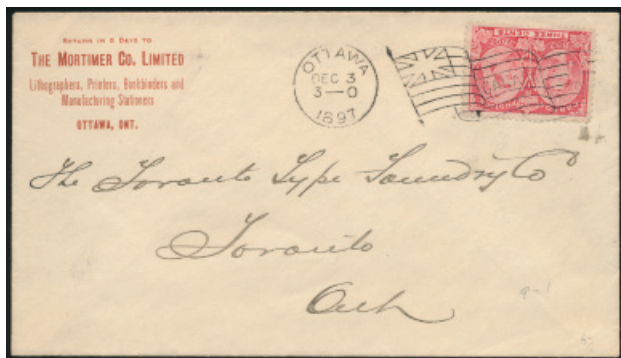 RETURN IN 5 DAYS TO
THE MORTIMER CO. LIMITED
Lithographers, Printers, Bookbinders and
Manufacturing Stationers
OTTAWA, ONT.
OTTAWA
DEC 3
3—0
1897
THREE CENTS
The Toronto Type Foundry Co
Toronto
Ont
9-1